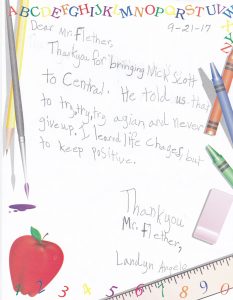 ABCDEFGHIJKLMNOPQRSTUVW
X
Y
Z
9-21-17
Dear Mr. Flether,
Thankyou for bringing Nick Scott
to Central. He told us that
to try,try,try agian, and never
giveup. I learnd life chages, but
to keep positive.
Thankyou
Mr. Flether,
Landyn